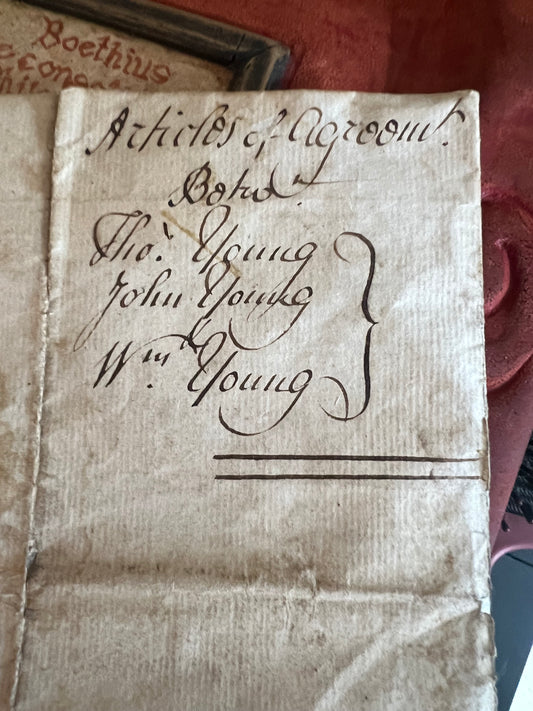 Boethius
Articles of Agreemt.
Betwn.
Thos. Young
John Young
&
Wm. Young